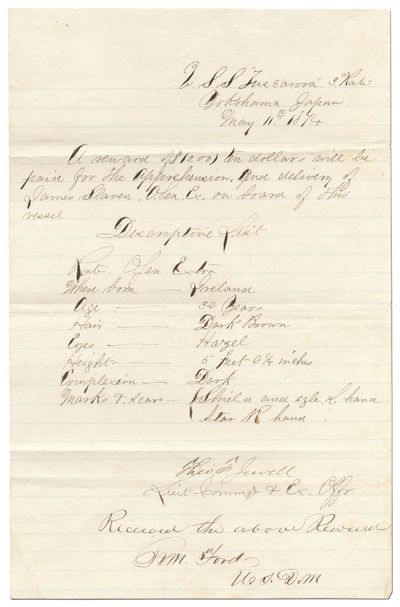 U. S. S. "Tuscarora" 3d Rate
Yokohama, Japan
May 11th 1874
A reward of ($10.00) Ten dollars will be
paid for the apprehension, and delivery of
James Slaven, O. Sea. Ex. on board of this
vessel
Descriptive List
Rate O Sea Extra
Where born — Ireland
Age — 32 Years
Hair — Dark Brown
Eyes — Hazel
Height — 5 feet 6¼ inches
Complexion — Dark
Marks & scars — Shield and egle L. hand
Star R hand.
Theo. F. Jewell
Lieut. Commdr & Ex. Offr
Received the above Reward
Ford
U S. D. M